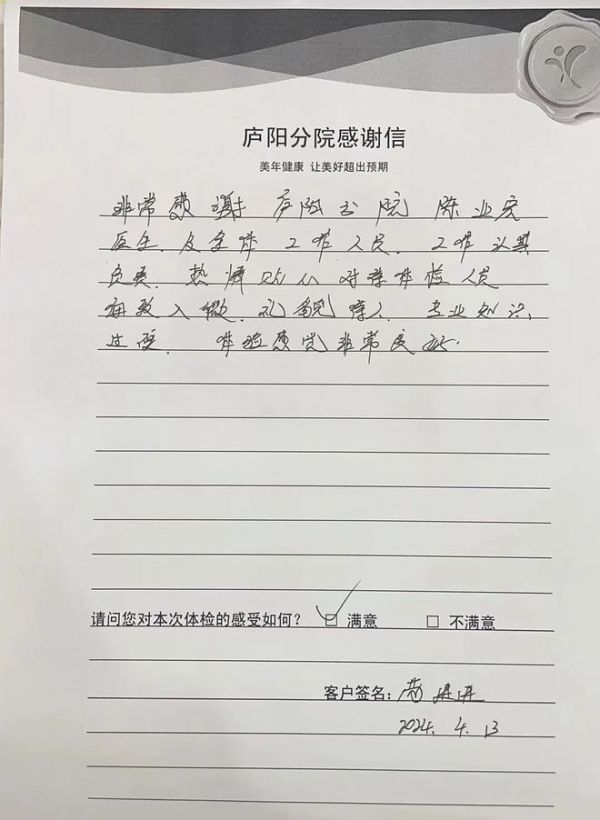 庐阳分院感谢信
美年健康 让美好超出预期
非常感谢 庐阳分院 陈业宏
医生.及全体工作人员.工作认真
负责.热情 对待体检人员
细致入微.礼貌待人.专业知识,
过硬. 体验感觉非常良好.
请问您对本次体检的感受如何? ☑ 满意 □ 不满意
客户签名:
2024.4.13